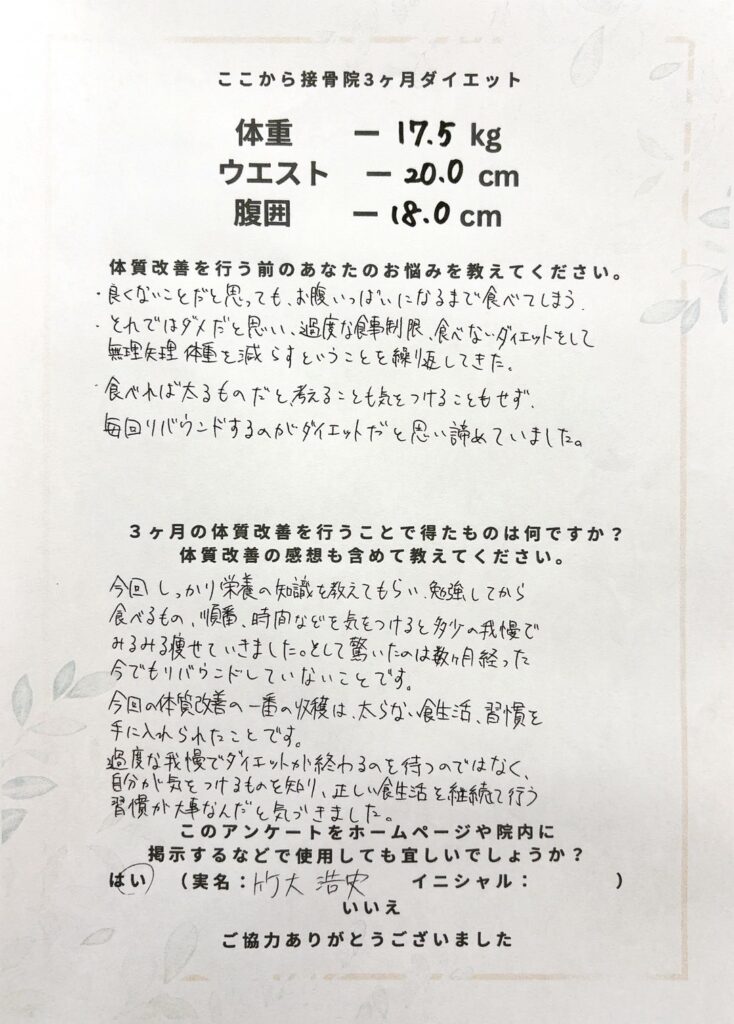 ここから接骨院3ヶ月ダイエット
体重 ー 17.5 kg
ウエスト ー 20.0 cm
腹囲 ー 18.0 cm
体質改善を行う前のあなたのお悩みを教えてください。
・良くないことだと思っても、お腹いっぱいになるまで食べてしまう.
・それではダメだと思い、過度な食事制限、食べないダイエットをして
無理矢理 体重を減らすということを繰り返してきた。
・食べれば太るものだと、考えることも気をつけることもせず、
毎回リバウンドするのがダイエットだと思い諦めていました。
3ヶ月の体質改善を行うことで得たものは何ですか?
体質改善の感想も含めて教えてください。
今回しっかり栄養の知識を教えてもらい、勉強してから
食べるもの、順番、時間などを気をつけると多少の我慢で
みるみる痩せていきました。そして驚いたのは数ヶ月経った
今でもリバウンドしていないことです。
今回の体質改善の一番の収穫は、太らない食生活、習慣を
手に入れられたことです。
過度な我慢でダイエットが終わるのを待つのではなく、
自分が気をつけるものを知り、正しい食生活を継続して行う
習慣が大事なんだと気づきました。
このアンケートをホームページや院内に
掲示するなどで使用しても宜しいでしょうか?
はい (実名:竹大 浩史 イニシャル: )
いいえ
ご協力ありがとうございました